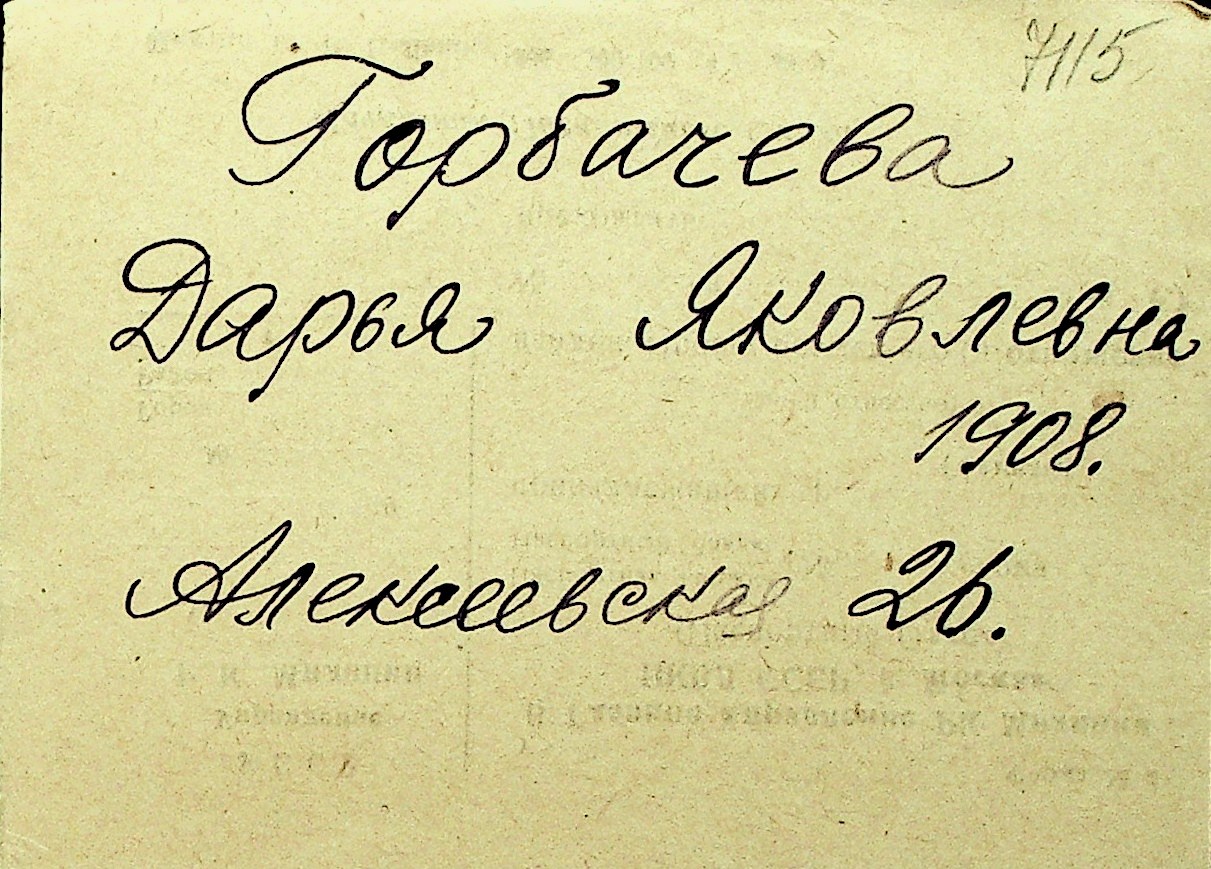 7115
Горбачева
Дарья Яковлевна
1908.
Алексеевская 26.